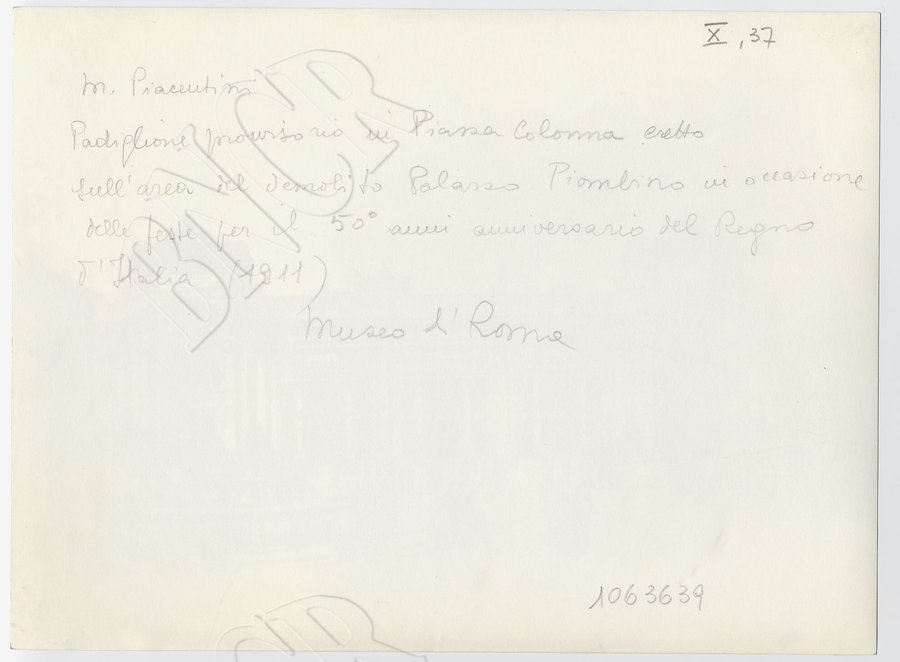 X, 37
M. Piacentini
Padiglione provvisorio in Piazza Colonna eretto
sull'area del demolito Palazzo Piombino in occasione
delle feste per il 50° anni anniversario del Regno
d'Italia (1911)
Museo d' Roma
1063639
BNCR